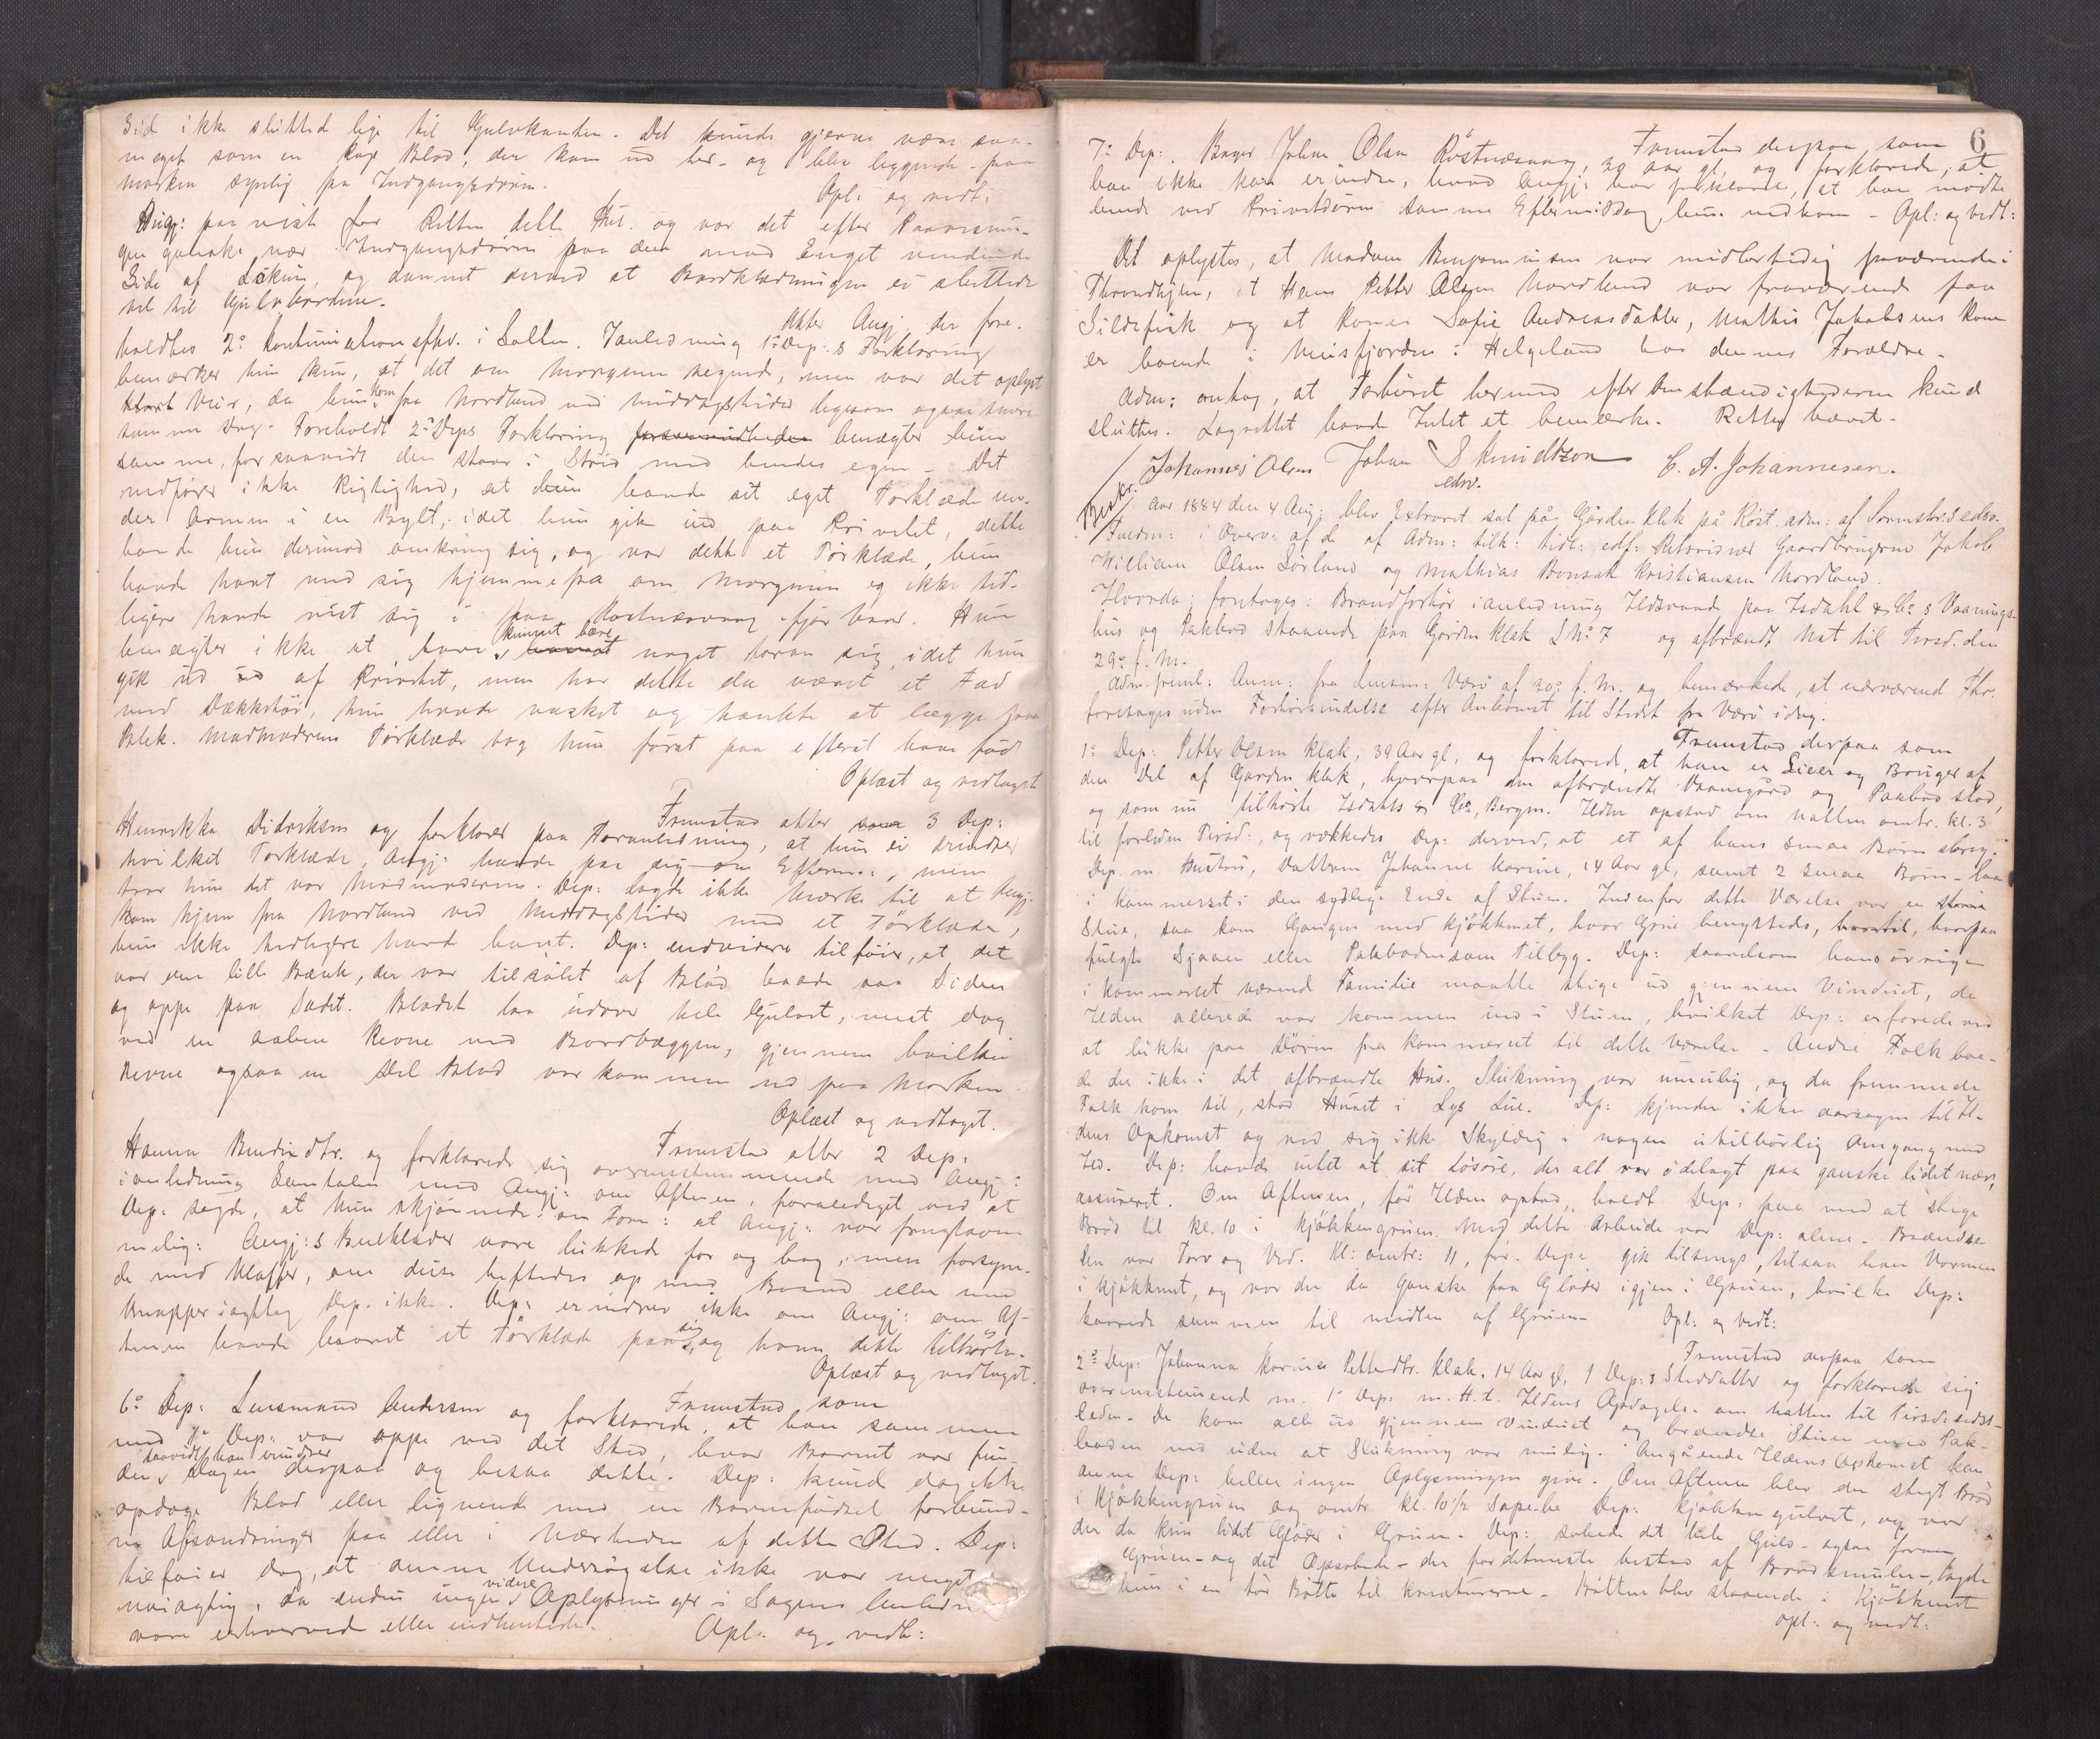 Sid ikke sluttet lige til Gulvkanten. Det kunde gjerne være saa-
meget som en Kop Blod, der kom ud her og blev liggende paa
Marken synlig fra Indgangsdøren.
Opl: og vedt:
Angj: paaviste for Retten dette Hul. og var det efter Paavisnin-
gen ganske nær Indgangsdøren paa den mod Enget vendende
Side af Lokum, og dannet derved at Bordklædningen ei sluttede
til Gulvbordene.
Atter Angj: der fore-
holdtes 2° Kontinuationsfhv. i Salten. I anledning 1° Dep:s Forklaring
bemærker hun kun, at det om Morgenen regned, men var det oplyst
klart Veir, da hun kom fra Nordland ved Middagstider ligesom ogsaa senere
samme Dag. Foreholdt 2° Deps Forklaring benægter hun
samme, forsaavidt den staar i Strid med hendes egen. Det
medfører ikke Rigtighed, at hun havde sit eget Tørklæde un-
der Armen i en Bylt, idet hun gik ind paa Privetet, dette
havde hun derimod omkring sig, og var dette et Tørklæde, hun
havde havt med sig hjemmefra om Morgenen og ikke tid-
ligere havde vist sig i paa Røstnæsvaag ifjor Vaar. Hun
benægter ikke at have kunnet bære noget foran sig, idet hun
gik ud af Privetet, men har dette da været et Fad
med Dækketøi, hun havde vasket og tænkte at lægge paa
Blek. Madmoderens Tørklæde tog hun først paa efterat have født
Oplæst og vedtaget
Fremstod atter 3 Dep:
Henrikka Didriksen og forklarer paa Foranledning, at hun ei erindrer
hvilket Tørklæde, Angj: havde paa sig om Efterm:, men
tror hun det var Madmoderens. Dep: lagde ikke Mærke til at Angj:
kom hjem fra Nordland ved Middagstider med et Tørklæde,
hun ikke tidligere havde havt. Dep: endvidere tilføier, at det
var en lille Bænk, der var tilsølet af Blod baade paa Siden
og oppe paa Sædet. Blodet laa udover hele Gulvet, mest dog
ved en aaben Revne ved Bordvæggen, gjennem hvilken
Revne ogsaa en Del Blod var kommen ud paa Marken
Oplæst og vedtaget.
Fremstod atter 2 Dep:
Hanna Bendixdtr. og forklarede sig overensstemmende med Angj:
i anledning Samtalen med Angj: om Aftenen, foranlediget ved at
Dep: sagde, at hun skjønnede om Form: at Angj: var frugtsom-
melig: Angj:s Buxklæder vare lukkede for og bag, men forsyne-
de med Klaffer, om disse heftedes op med Baand eller med
Knapper iagttog Dep. ikke. Dep: erindrer ikke om Angj: om Af-
tenen havde baaret et Tørklæde paa sig, og hvem dette tilhørte.
Oplæst og vedtaget.
Fremstod som
6° Dep: Lensmand Andersen og forklarede, at han sammen
med 1° Dep: var oppe ved det Sted, hvor Barnet var fun-
den saavidt han erindrer Dagen derpaa og besaa dette. Dep: kunde dog ikke
opdage Blod eller lignende med en Barnefødsel forbund-
ne Afsondringer paa eller i Nærheden af dette Sted. Dep:
tilføier dog, at denne Undersøgelse ikke var meget
nøiagtig, da endnu ingen videre Oplysninger i Sagens Anledn
vare erhvervede eller indhentede. Opl: og vedt:
6
Fremstod derpaa som
7° Dep: Bager Johan Olsen Røstnæsvaag, 30 aar gl, og forklarede, at
han ikke kan erindre, hvad Angj: har forklaret, at han mødte
hende ved Privetdøren samme Eftermiddag, hun nedkom - Opl: og vedt:
Det oplystes, at Madam Benjaminsen var midlertidig fraværende i
Throndhjem, at Hans Petter Olsen Nordland var fraværende paa
Sildefisk og at Konen Sofie Andreasdatter, Mathis Jakobsens Kone
er boende i Misfjorden i Helgeland hos dennes Forældre.
Adm: antog, at Forhøret hermed efter Omstændighederne kunde
sluttes. Lagrettet havde Intet at bemærke. Retten hævet.
Johannes Olsen Johan Schmidtzon C. A. Johannesen.
edsv.
Beskr.
Aar 1884 den 4 Aug: blev Extraret sat på Gården Klak på Røst, adm: af Sorenskr:s edsv.
Fuldm: i Overv: af de af Adm: tilk: tidl: edf: Retsvidner Gaardbrugerne Jakob
William Olsen Sørland og Mathias Bonsak Kristiansen Nordland.
Hvorda: foretoges: Brandforhør i anledning Ildsvaade paa Isdahl & Co s Vaanings-
hus og Pakbod staaende paa Gården Klak L No 7 og afbrændt Nat til Tirsd. den
29° f. M.
Adm. freml: Anm: fra Lensm: Værø af 30° f. M. og bemærkede, at nærværende Fhr.
foretages uden Forhørsindelse efter Ankomst til Stedet fra Værø idag.
Fremstod derpaa som
1° Dep: Petter Olsen Klak, 39 Aar gl, og forklarede, at han er Leier og Bruger af
den Del af Gården Klak, hvorpaa den afbrændte Vaanegård og Pakbod stod,
og som nu tilhører Isdahls & Co, Bergen. Ilden opstod om natten omtr. kl. 3
til forleden Tirsd:, og vækkedes Dep: derved, at et af hans smaa Børn skreg.
Dep. m. Hustru, Datteren Johanne Karine, 14 Aar gl, samt 2 smaa Børn - laa
i Kammerset i den sydlige Ende af Stuen. Indenfor dette Værelse var en større
Stue, saa kom Gangen med Kjøkkenet, hvor Grue benyttedes, hvorpaa
fulgte Sjaaen eller Pakboden som Tilbyg. Dep: saavelsom hans øvrige
i Kammerset værende Familie maatte stige ud gjennem Vinduet, da
Ilden allerede var kommen ind i Stuen, hvilket Dep: erfarede ved
at lukke paa Døren fra Kammerset til dette Værelse. Andre Folk boe-
de der ikke i det afbrændte Hus. Slukning var umulig, og da fremmede
Folk kom til, stod Huset i Lys Lue. Dep: kjender ikke Aarsagen til Il-
dens Opkomst og ved sig ikke skyldig i nogen utilbørlig Omgang med
Ild. Dep: havde intet af sit Løsøre, der alt var ødelagt paa ganske lidet nær,
assureret. Om Aftenen, før Ilden opstod, holdt Dep: paa med at stege
Brød til kl. 10 i Kjøkkengruen. Med dette Arbeide var Dep: alene. Brændse
len var Torv og Ved. Kl: omtr: 11, før Dep: gik tilsengs, tilsaa han Varmen
i Kjøkkenet, og var der da ganske faa Gløder igjen i Gruen, hvilke Dep:
karrede sammen til midten af Gruen. Opl: og vedt:
Fremstod derpaa som
2° Dep: Johanna Karine Petterdtr. Klak, 14 Aar gl, 1 Dep:s Steddatter og forklarede sig
overensstemmende m. 1° Dep: m. H. t. Ildens Opdagelse om natten til Tirsd: sidst-
leden. De kom alle ud gjennem Vinduet og brændte Stuen med Pak-
boden ned uden at Slukning var mulig. Angående Ildens Opkomst kan
denne Dep: heller ingen Oplysninger give. Om Aftenen blev der stegt Brød
i Kjøkkengruen og omtr kl. 10 1/2 Dep: Kjøkkengulvet, og var
der da kun lidet Gløder i Gruen. Dep: sobede det hele Gulv - ogsaa foran
Gruen - og det Opsobede - der fordetmeste bestod af Brødsmuler -, lagde
hun i en tør Bøtte til Kreaturerne. Bøtten blev staaende i Kjøkkenet
Opl: og vedt: